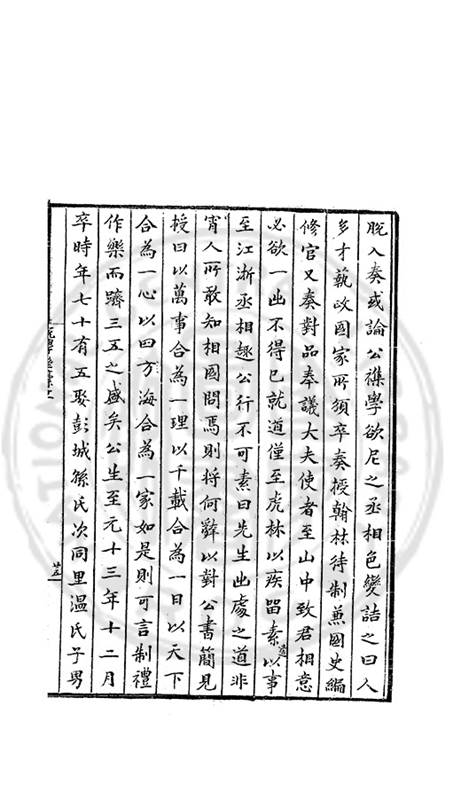 脫入奏或論公襍學欲尼之丞相色變詰之曰人
多才藝政國家所須卒奏授翰林待制兼國史編
修官又奏對品奉議大夫使者至山中致君相意
必欲一出不得已就道僅至虎林以疾留素以事
至江浙丞相趣公行不可素曰先生出處之道非
宵人所敢知相國問焉則將何辭以對公書簡見
授曰以萬事合為一理以千載合為一日以天下
合為一心以四方海合為一家如是則可言制禮
作樂而躋三五之盛矣公生至元十三年十二月
卒時年七十有五娶彭城孫氏次同里溫氏子男